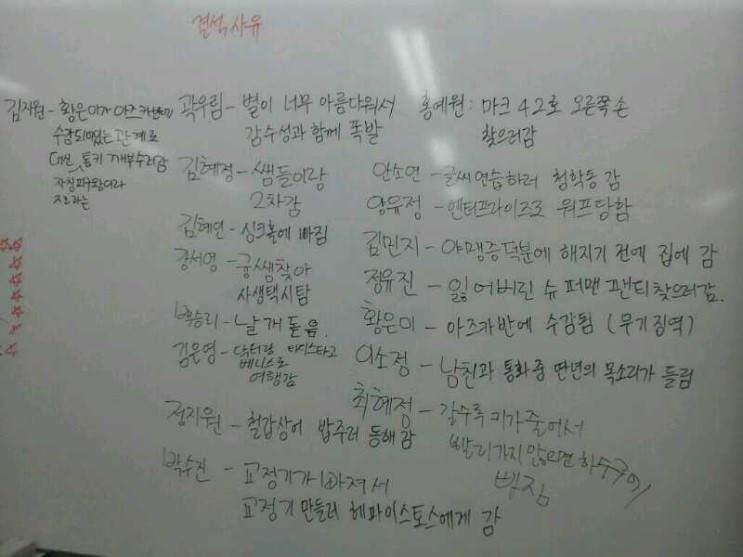 결석사유
김지원 - 황은미가 아즈카반에
수감되었는 관계로
대신 통키 깨부수러감
자칭피구왕이라
지는
곽우림 - 별이 너무 아름다워서
감수성과 함께 폭발
김혜정 - 쌤들이랑
2차감
김혜연 - 싱크홀에 빠짐
강서영 - 궁쌤찾아
사생택시탐
박승리 - 날개 돋음.
김윤영 - 닥터랑 타디스타고
베니스로
여행감
정지원 - 철갑상어 밥주러 동해감
박수진 - 교정기가 빠져서
교정기 만들러 헤파이스토스에게 감
홍예원 : 마크 42호 오른쪽 손
찾으러감
안소연 - 글씨연습하러 청학동 감
양유정 - 엔터프라이즈로 워프당함
김민지 - 야맹증덕분에 해지기 전에 집에 감
정유진 - 잃어버린 슈퍼맨 팬티찾으러감.
황은미 - 아즈카반에 수감됨 (무기징역)
이소정 - 남친과 통화중 딴년의 목소리가 들림
최혜정 - 갈수록 키가 줄어서
빨리가지 않으면 하수구에
빠짐